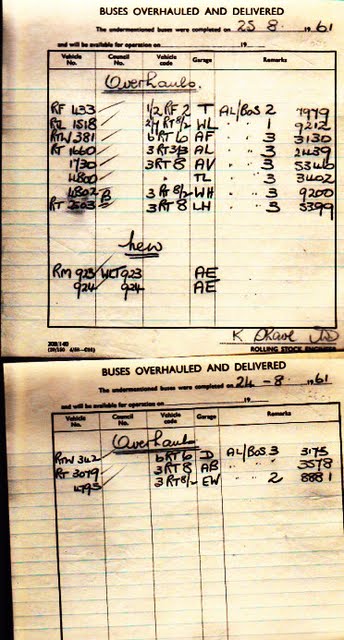 BUSES OVERHAULED AND DELIVERED
The undermentioned buses were completed on 25 8. 1961
and will be available for operation on 19
Vehicle No. Council No. Vehicle code Garage Remarks
Overhauls
RF 433 1/2 RF 2 T AL/BOS 2 7979
RTL 1518 WL " " 1 9212
RTW 381 6 RT 6 AF " " 3 3130
RT 1660 3 RT 3/3 AL " " 3 2439
1730 3 RT 8 AV " " 3 5346
4800 " TL " " 3 3402
4802 3 RT 8/2 WH " " 3 9200
RT 2503 B 3 RT 8 LH " " 3 5399
New
RM 923 WLT 923 AE
924 924 AE
ROLLING STOCK ENGINEER
BUSES OVERHAULED AND DELIVERED
The undermentioned buses were completed on 24 - 8. 1961
and will be available for operation on 19
Vehicle No. Council No. Vehicle code Garage Remarks
Overhauls
RTW 342 6 RT 6 D AL/BOS 3 3175
RT 3079 3 RT 8 AB " " 3578
4795 3 RT 8/ EW " " 2 8881